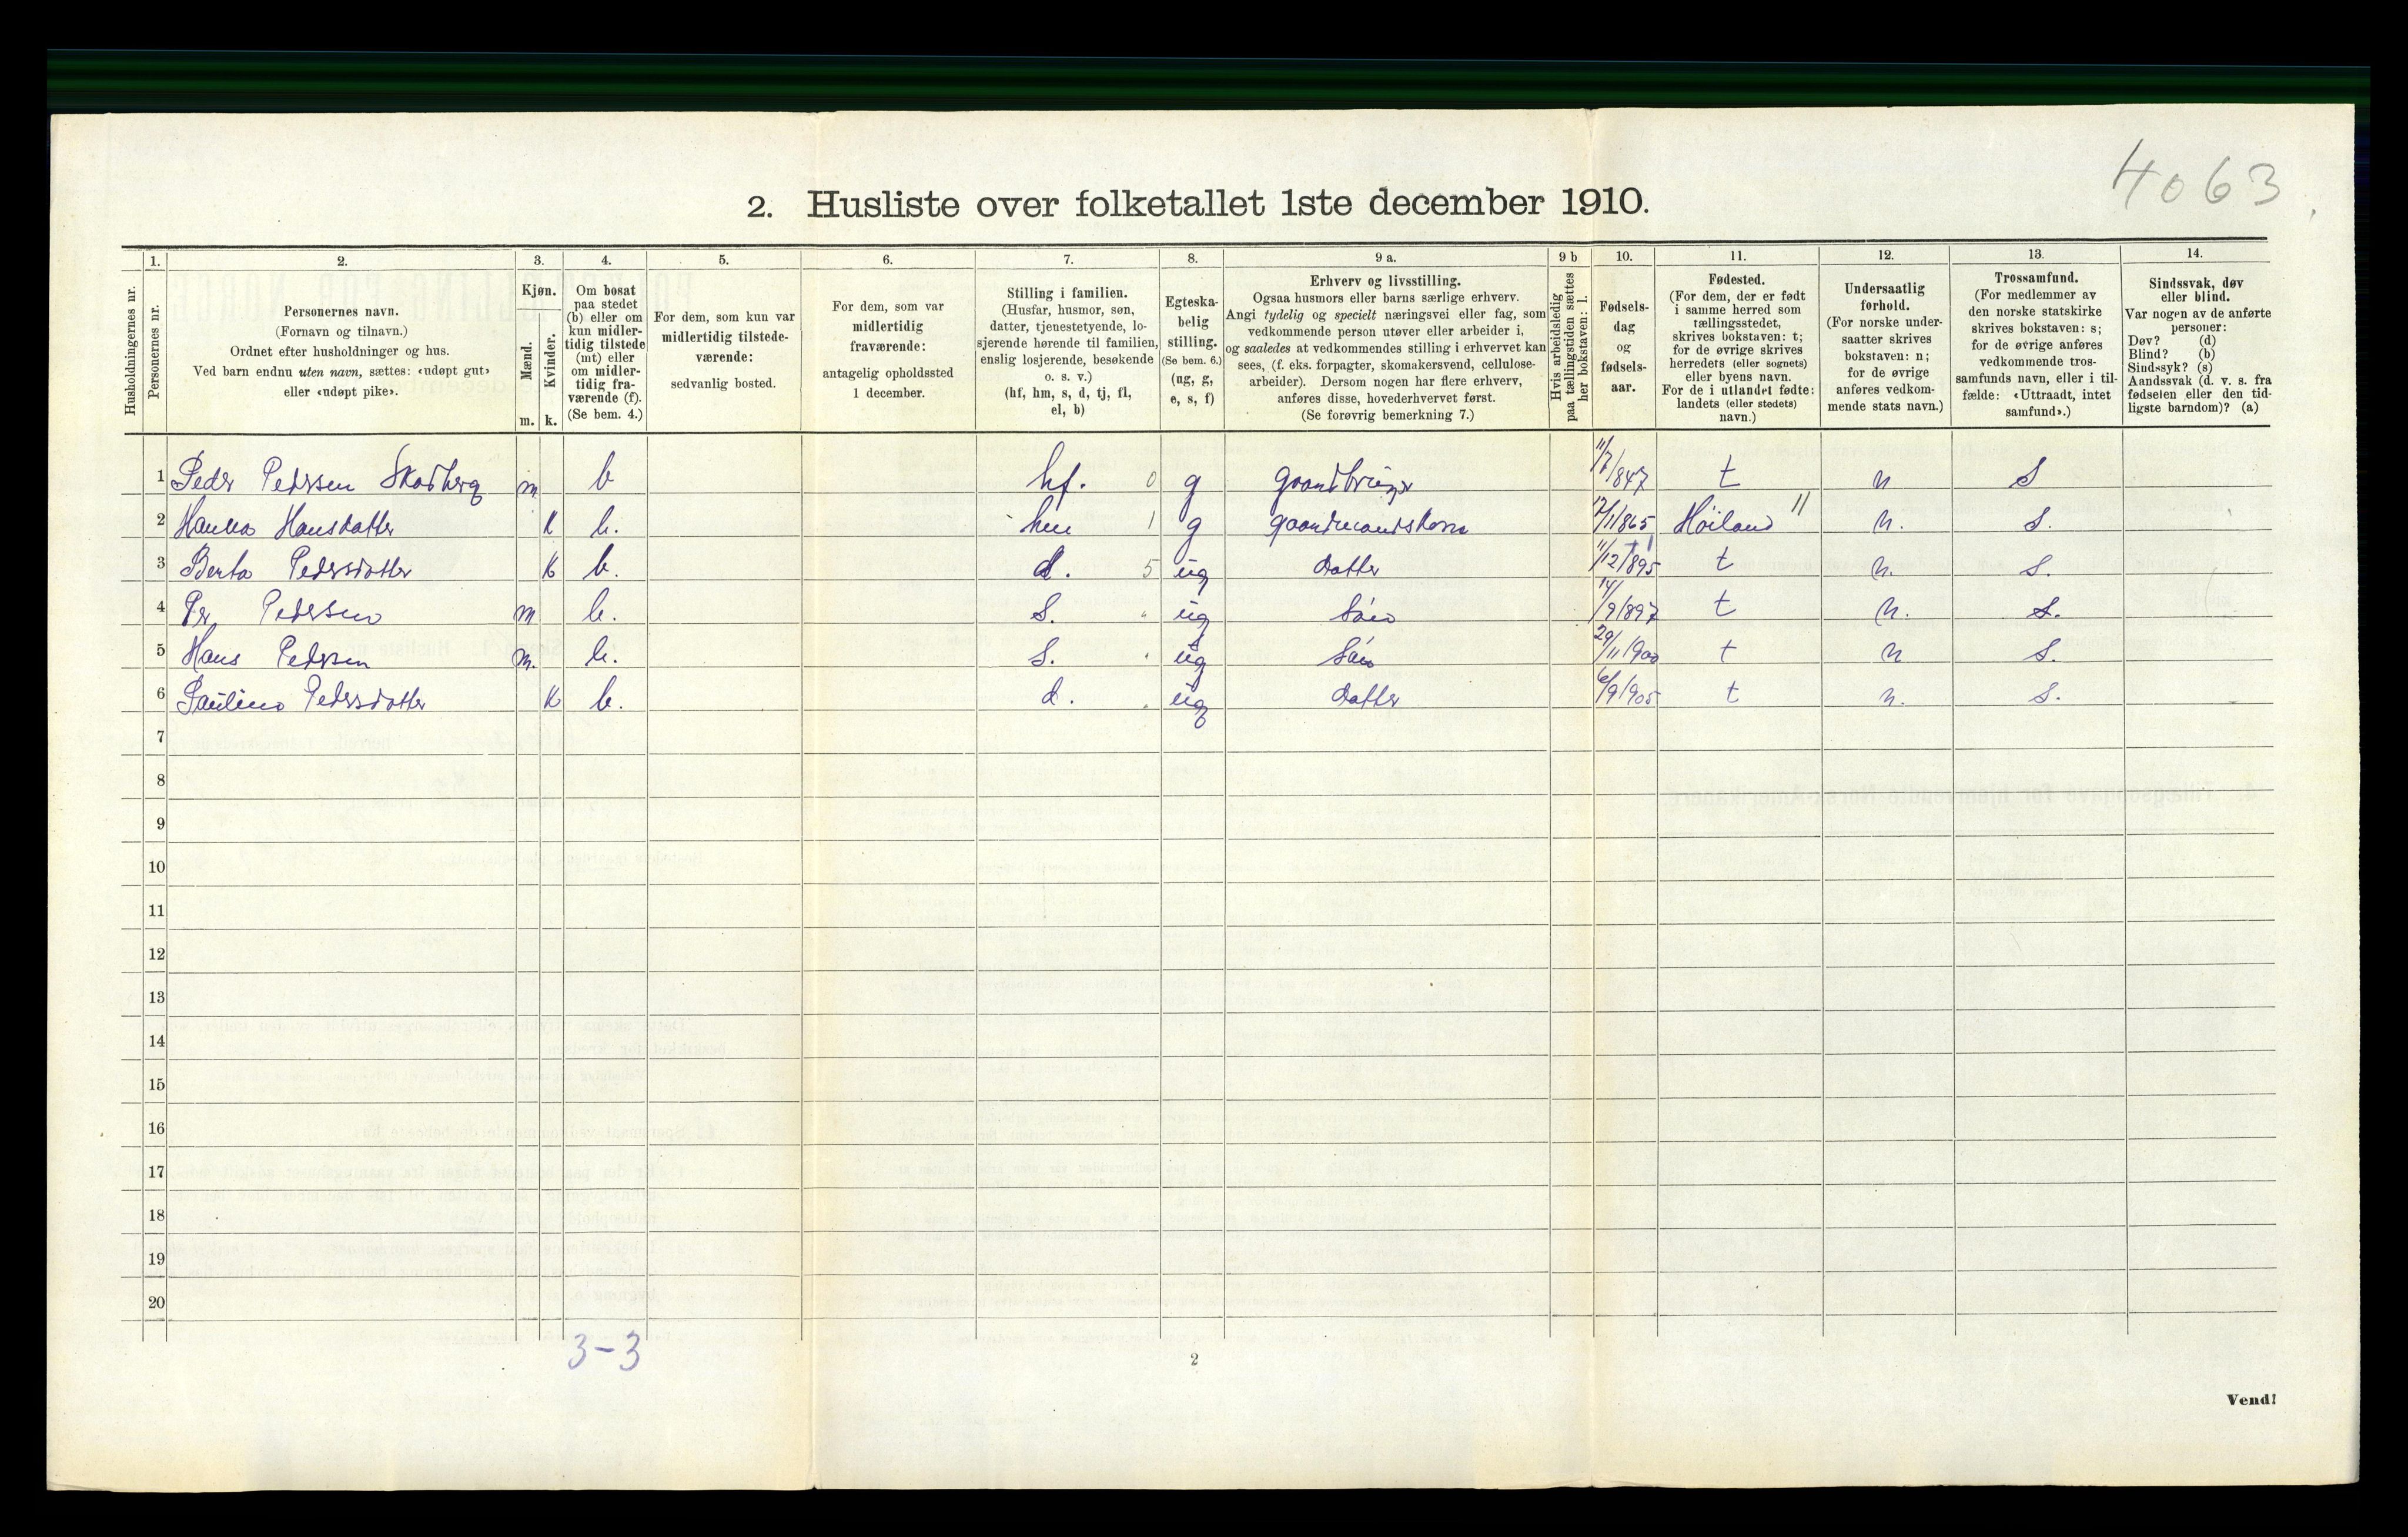 4063
2. Husliste over folketallet 1ste december 1910.
Husholdningernes nr.
1.
Personernes nr.
2.
Personernes navn.
(Fornavn og tilnavn.)
Ordnet efter husholdninger og hus.
Ved barn endnu uten navn, sættes: «udøpt gut»
eller «udøpt pike».
3.
Kjøn.
Mænd.
Kvinder.
m. k.
4.
Om bosat
paa stedet
(b) eller om
kun midler-
tidig tilstede
(mt) eller
om midler-
tidig fra-
værende (f).
(Se bem. 4.)
5.
For dem, som kun var
midlertidig tilstede-
værende:
sedvanlig bosted.
6.
For dem, som var
midlertidig
fraværende:
antagelig opholdssted
1 december.
7.
Stilling i familien.
(Husfar, husmor, søn,
datter, tjenestetyende, lo-
sjerende hørende til familien,
enslig losjerende, besøkende
o. s. v.)
(hf, hm, s, d, tj, fl,
el, b)
8.
Egteska-
belig
stilling.
(Se bem. 6.)
(ug, g,
e, s, f)
9 a.
Erhverv og livsstilling.
Ogsaa husmors eller barns særlige erhverv.
Angi tydelig og specielt næringsvei eller fag, som
vedkommende person utøver eller arbeider i,
og saaledes at vedkommendes stilling i erhvervet kan
sees, (f. eks. forpagter, skomakersvend, cellulose-
arbeider). Dersom nogen har flere erhverv,
anføres disse, hovederhvervet først.
(Se forøvrig bemerkning 7.)
9 b
Hvis arbeidsledig
paa tællingstiden sættes
her bokstaven: l.
10.
Fødsels-
dag
og
fødsels-
aar.
11.
Fødested.
(For dem, der er født
i samme herred som
tællingsstedet,
skrives bokstaven: t;
for de øvrige skrives
herredets (eller sognets)
eller byens navn.
For de i utlandet fødte:
landets (eller stedets)
navn.)
12.
Undersaatlig
forhold.
(For norske under-
saatter skrives
bokstaven: n;
for de øvrige
anføres vedkom-
mende stats navn.)
13.
Trossamfund.
(For medlemmer av
den norske statskirke
skrives bokstaven: s;
for de øvrige anføres
vedkommende tros-
samfunds navn, eller i til-
fælde: «Uttraadt, intet
samfund».)
14.
Sindssvak, døv
eller blind.
Var nogen av de anførte
personer:
Døv? (d)
Blind? (b)
Sindssyk? (s)
Aandssvak (d. v. s. fra
fødselen eller den tid-
ligste barndom)? (a)
1 Peder Pedersen Skadberg m b hf. 0 g gaardbruger 11/7/847 t n S
2 Hanna Hansdatter k b. hm 1 g gaardmandskone 17/11/865 Høiland 11 n. S.
3 Berta Pedersdatter k b. d. 5 ug datter 11/12/895 t n. S.
4 Per Pedersen m b. S. " ug Søn 14/9/897 t n. S.
5 Hans Pedersen m. b. S. " ug Søn 29/11/900 t n S.
6 Pauline Pedersdatter k b. d. " ug datter 6/9/905 t n. S.
7
8
9
10
11
12
13
14
15
16
17
18
19
20
3-3
2
Vend!